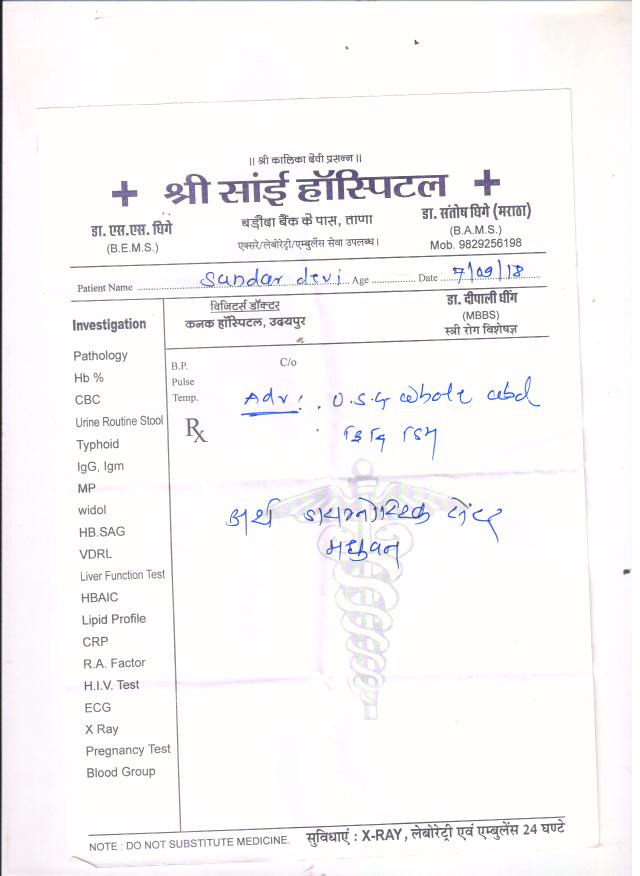 ॥ श्री कालिका देवी प्रसन्न ॥
श्री सांई हॉस्पिटल
डा. एस.एस. घिंगे
(B.E.M.S.)
बड़ौदा बैंक के पास, ताणा
एक्सरे/लेबोरेट्री/एम्बुलेंस सेवा उपलब्ध।
डा. संतोष घिंगे (मराठा)
(B.A.M.S.)
Mob. 9829256198
Patient Name Sundar devi Age Date 7/09/18
Investigation
विजिटर्स डॉक्टर
कनक हॉस्पिटल, उदयपुर
डा. दीपाली धींग
(MBBS)
स्त्री रोग विशेषज्ञ
Pathology
Hb %
CBC
Urine Routine Stool
Typhoid
IgG, Igm
MP
widol
HB.SAG
VDRL
Liver Function Test
HBAIC
Lipid Profile
CRP
R.A. Factor
H.I.V. Test
ECG
X Ray
Pregnancy Test
Blood Group
B.P. C/o
Pulse
Temp.
Rx
Adv: . U.S.G whole abd
अर्थ डायग्नोस्टिक सेंटर
मधुवन
NOTE : DO NOT SUBSTITUTE MEDICINE. सुविधाएं : X-RAY, लेबोरेट्री एवं एम्बुलेंस 24 घण्टे